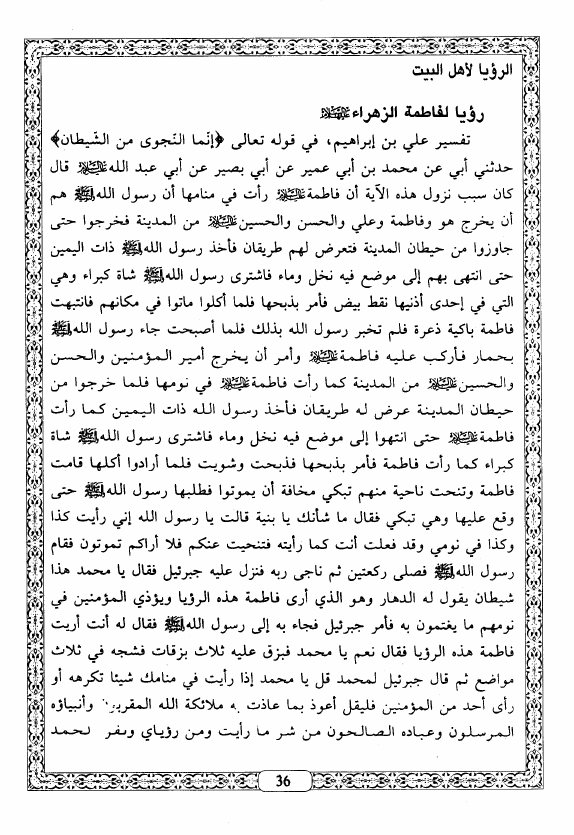 الرؤيا لأهل البيت
رؤيا لفاطمة الزهراء
تفسير علي بن إبراهيم، في قوله تعالى ﴿إنّما النّجوى من الشّيطان﴾
حدثني أبي عن محمد بن أبي عمير عن أبي بصير عن أبي عبد الله قال
كان سبب نزول هذه الآية أن فاطمة رأت في منامها أن رسول الله ﷺ هم
أن يخرج هو وفاطمة وعلي والحسن والحسين من المدينة فخرجوا حتى
جاوزوا من حيطان المدينة فتعرض لهم طريقان فأخذ رسول الله ﷺ ذات اليمين
حتى انتهى بهم إلى موضع فيه نخل وماء فاشترى رسول الله ﷺ شاة كبراء وهي
التي في إحدى أذنيها نقط بيض فأمر بذبحها فلما أكلوا ماتوا في مكانهم فانتبهت
فاطمة باكية ذعرة فلم تخبر رسول الله بذلك فلما أصبحت جاء رسول الله ﷺ
بحمار فأركب عليه فاطمة وأمر أن يخرج أمير المؤمنين والحسن
والحسين من المدينة كما رأت فاطمة في نومها فلما خرجوا من
حيطان المدينة عرض له طريقان فأخذ رسول الله ذات اليمين كما رأت
فاطمة حتى انتهوا إلى موضع فيه نخل وماء فاشترى رسول الله ﷺ شاة
كبراء كما رأت فاطمة فأمر بذبحها فذبحت وشويت فلما أرادوا أكلها قامت
فاطمة وتنحت ناحية منهم تبكي مخافة أن يموتوا فطلبها رسول الله ﷺ حتى
وقع عليها وهي تبكي فقال ما شأنك يا بنية قالت يا رسول الله إني رأيت كذا
وكذا في نومي وقد فعلت أنت كما رأيته فتنحيت عنكم فلا أراكم تموتون فقام
رسول الله ﷺ فصلى ركعتين ثم ناجى ربه فنزل عليه جبرئيل فقال يا محمد هذا
شيطان يقول له الدهار وهو الذي أرى فاطمة هذه الرؤيا ويؤذي المؤمنين في
نومهم ما يغتمون به فأمر جبرئيل فجاء به إلى رسول الله ﷺ فقال له أنت أريت
فاطمة هذه الرؤيا فقال نعم يا محمد فبزق عليه ثلاث بزقات فشجه في ثلاث
مواضع ثم قال جبرئيل لمحمد قل يا محمد إذا رأيت في منامك شيئا تكرهه أو
رأى أحد من المؤمنين فليقل أعوذ بما عاذت به ملائكة الله المقربون وأنبياؤه
المرسلون وعباده الصالحون من شر ما رأيت ومن رؤياي
36